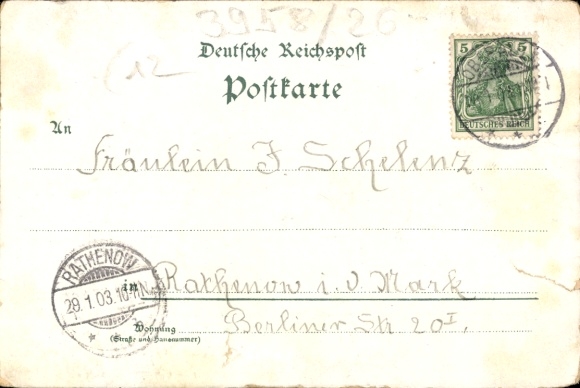 3958/26
12
Deutsche Reichspost
Postkarte
5 5
DEUTSCHES REICH
An
Fräulein F. Schelenz
RATHENOW
29.1.03. 10-11N.
in Rathenow i. d. Mark
Wohnung
(Straße und Hausnummer)
Berliner Str 20I.